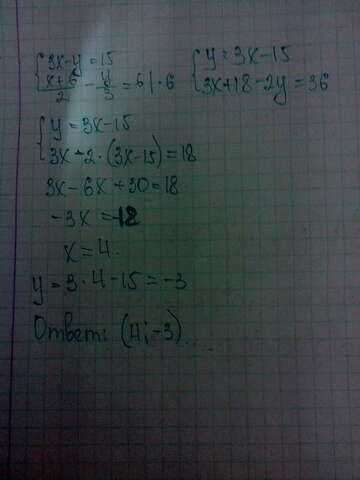 {3x-y=15 {y=3x-15
{(x+6)/2 - y/3 = 6 | · 6 {3x+18-2y=36
{y=3x-15
{3x-2·(3x-15)=18
3x-6x+30=18
-3x=-12
x=4.
y=3·4-15=-3
Ответ: (4;-3)